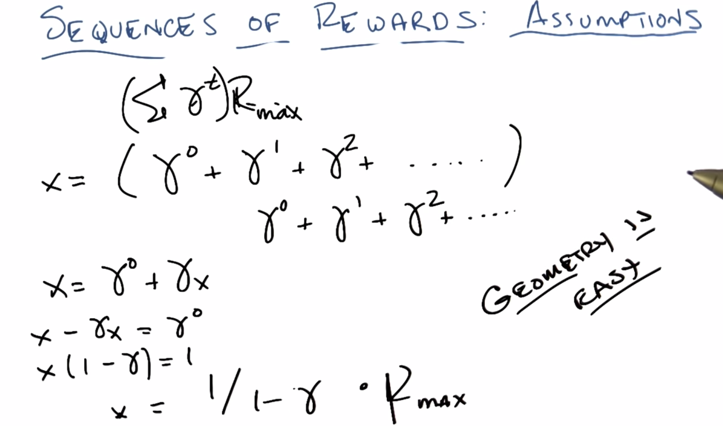 SEQUENCES OF REWARDS: ASSUMPTIONS
(∑ γ^t) R_max
x = (γ^0 + γ^1 + γ^2 + ..... )
γ^0 + γ^1 + γ^2 + .....
x = γ^0 + γx
x - γx = γ^0
x(1 - γ) = 1
x = 1/1-γ · R_MAX
GEOMETRY IS
EASY